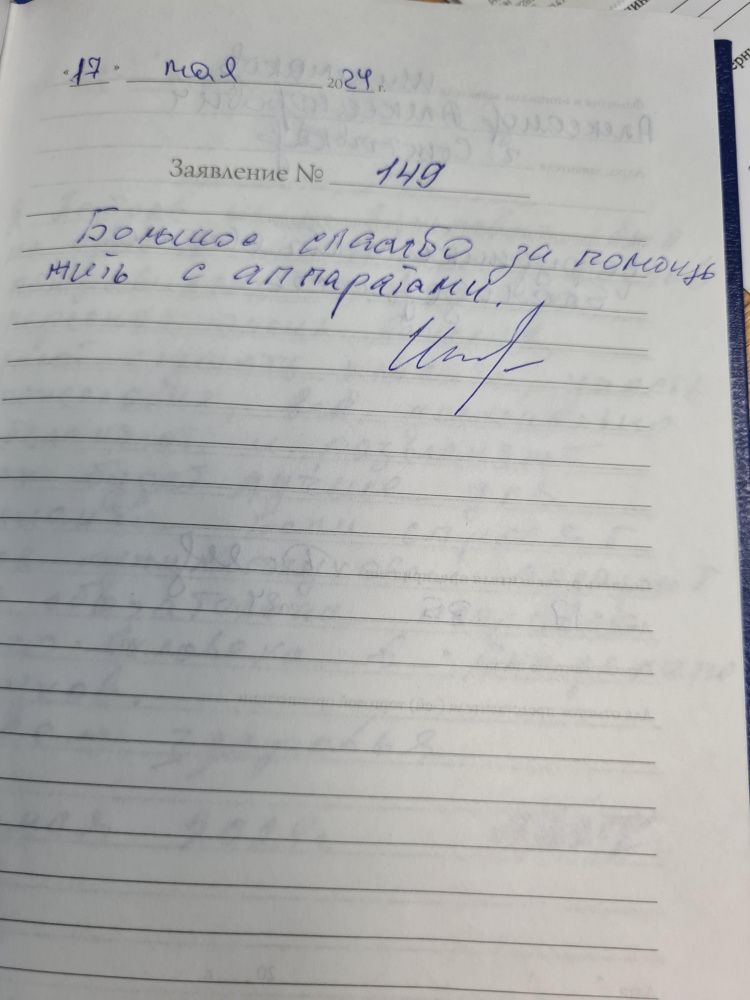 «17» мая 2024 г.
Заявление № 149
Большое спасибо за помощь
жить с аппаратами.